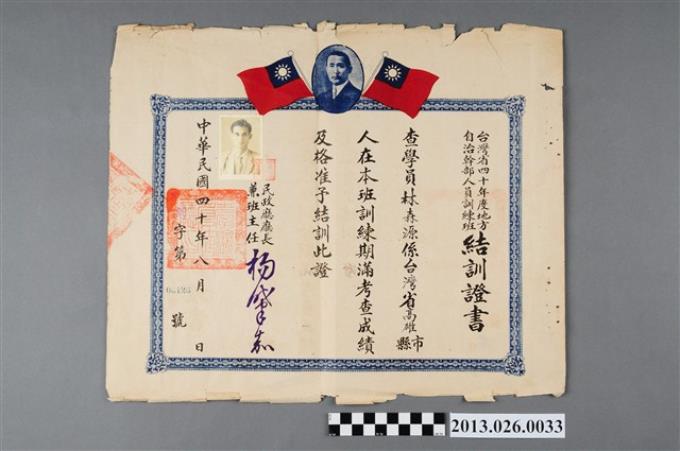 台灣省四十年度地方
自治幹部人員訓練班
結訓證書
查學員林森源係台灣省高雄縣市
人在本班訓練期滿考查成績
及格准予結訓此證
民政廳廳長
兼班主任
楊肇嘉
中華民國四十年八月 日
字第 號
2013.026.0033